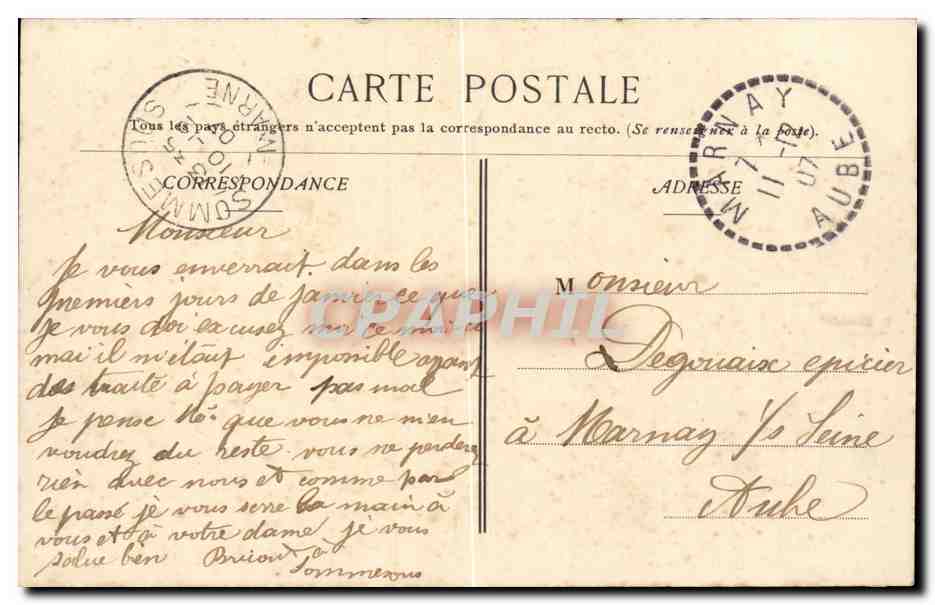 CARTE POSTALE
Tous les pays étrangers n'acceptent pas la correspondance au recto. (Se renseigner à la poste).
CORRESPONDANCE
Monsieur
Je vous enverrait dans les
premiers jours de janvier ce que
je vous doi excusez moi ce mois ci
mai il m'étaut imponible ayant
des traite à payer pas mal
je pense que vous ne m'en
voudrez du reste vous ne perderez
rien avec nous et comme par
le passé je vous serre la main à
vous et à votre dame je vous
salue bien Brioux à
Sommesous
ADRESSE
Monsieur
Degouaix epicier
à Marnay s/s Seine
Aube
SOMMESOUS MARNE
MARNAY AUBE
7
11 -12
07
CPARPHIL